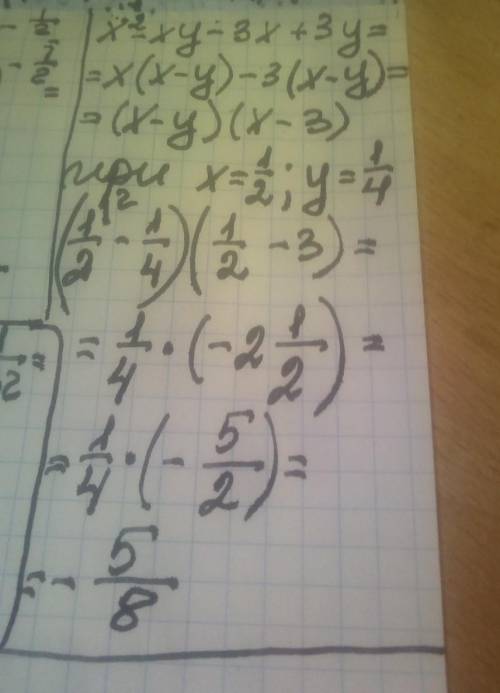 x² - xy - 3x + 3y =
= x(x-y) - 3(x-y) =
= (x-y)(x-3)
при x = 1/2; y = 1/4
(1/2 - 1/4)(1/2 - 3) =
= 1/4 · (-2 1/2) =
= 1/4 · (- 5/2) =
= - 5/8